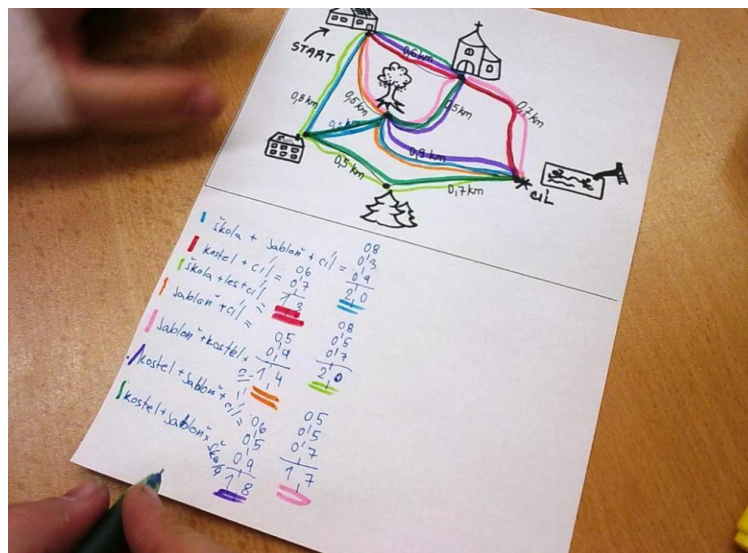 START
0,6 km
0,8 km
0,5 km
0,5 km
0,7 km
0,3 km
0,9 km
0,5 km
0,7 km
CÍL
škola + jabloň + cíl =
08
0,3
0,9
2,0
kostel + cíl =
06
0,7
1,3
škola + les + cíl =
08
0,5
0,7
2,0
jabloň + cíl =
0,5
0,9
1,4
jabloň + kostel +
cíl =
0,5
0,5
0,7
1,7
kostel + jabloň + cíl =
06
0,5
0,9
1,8
kostel + jabloň +
škola